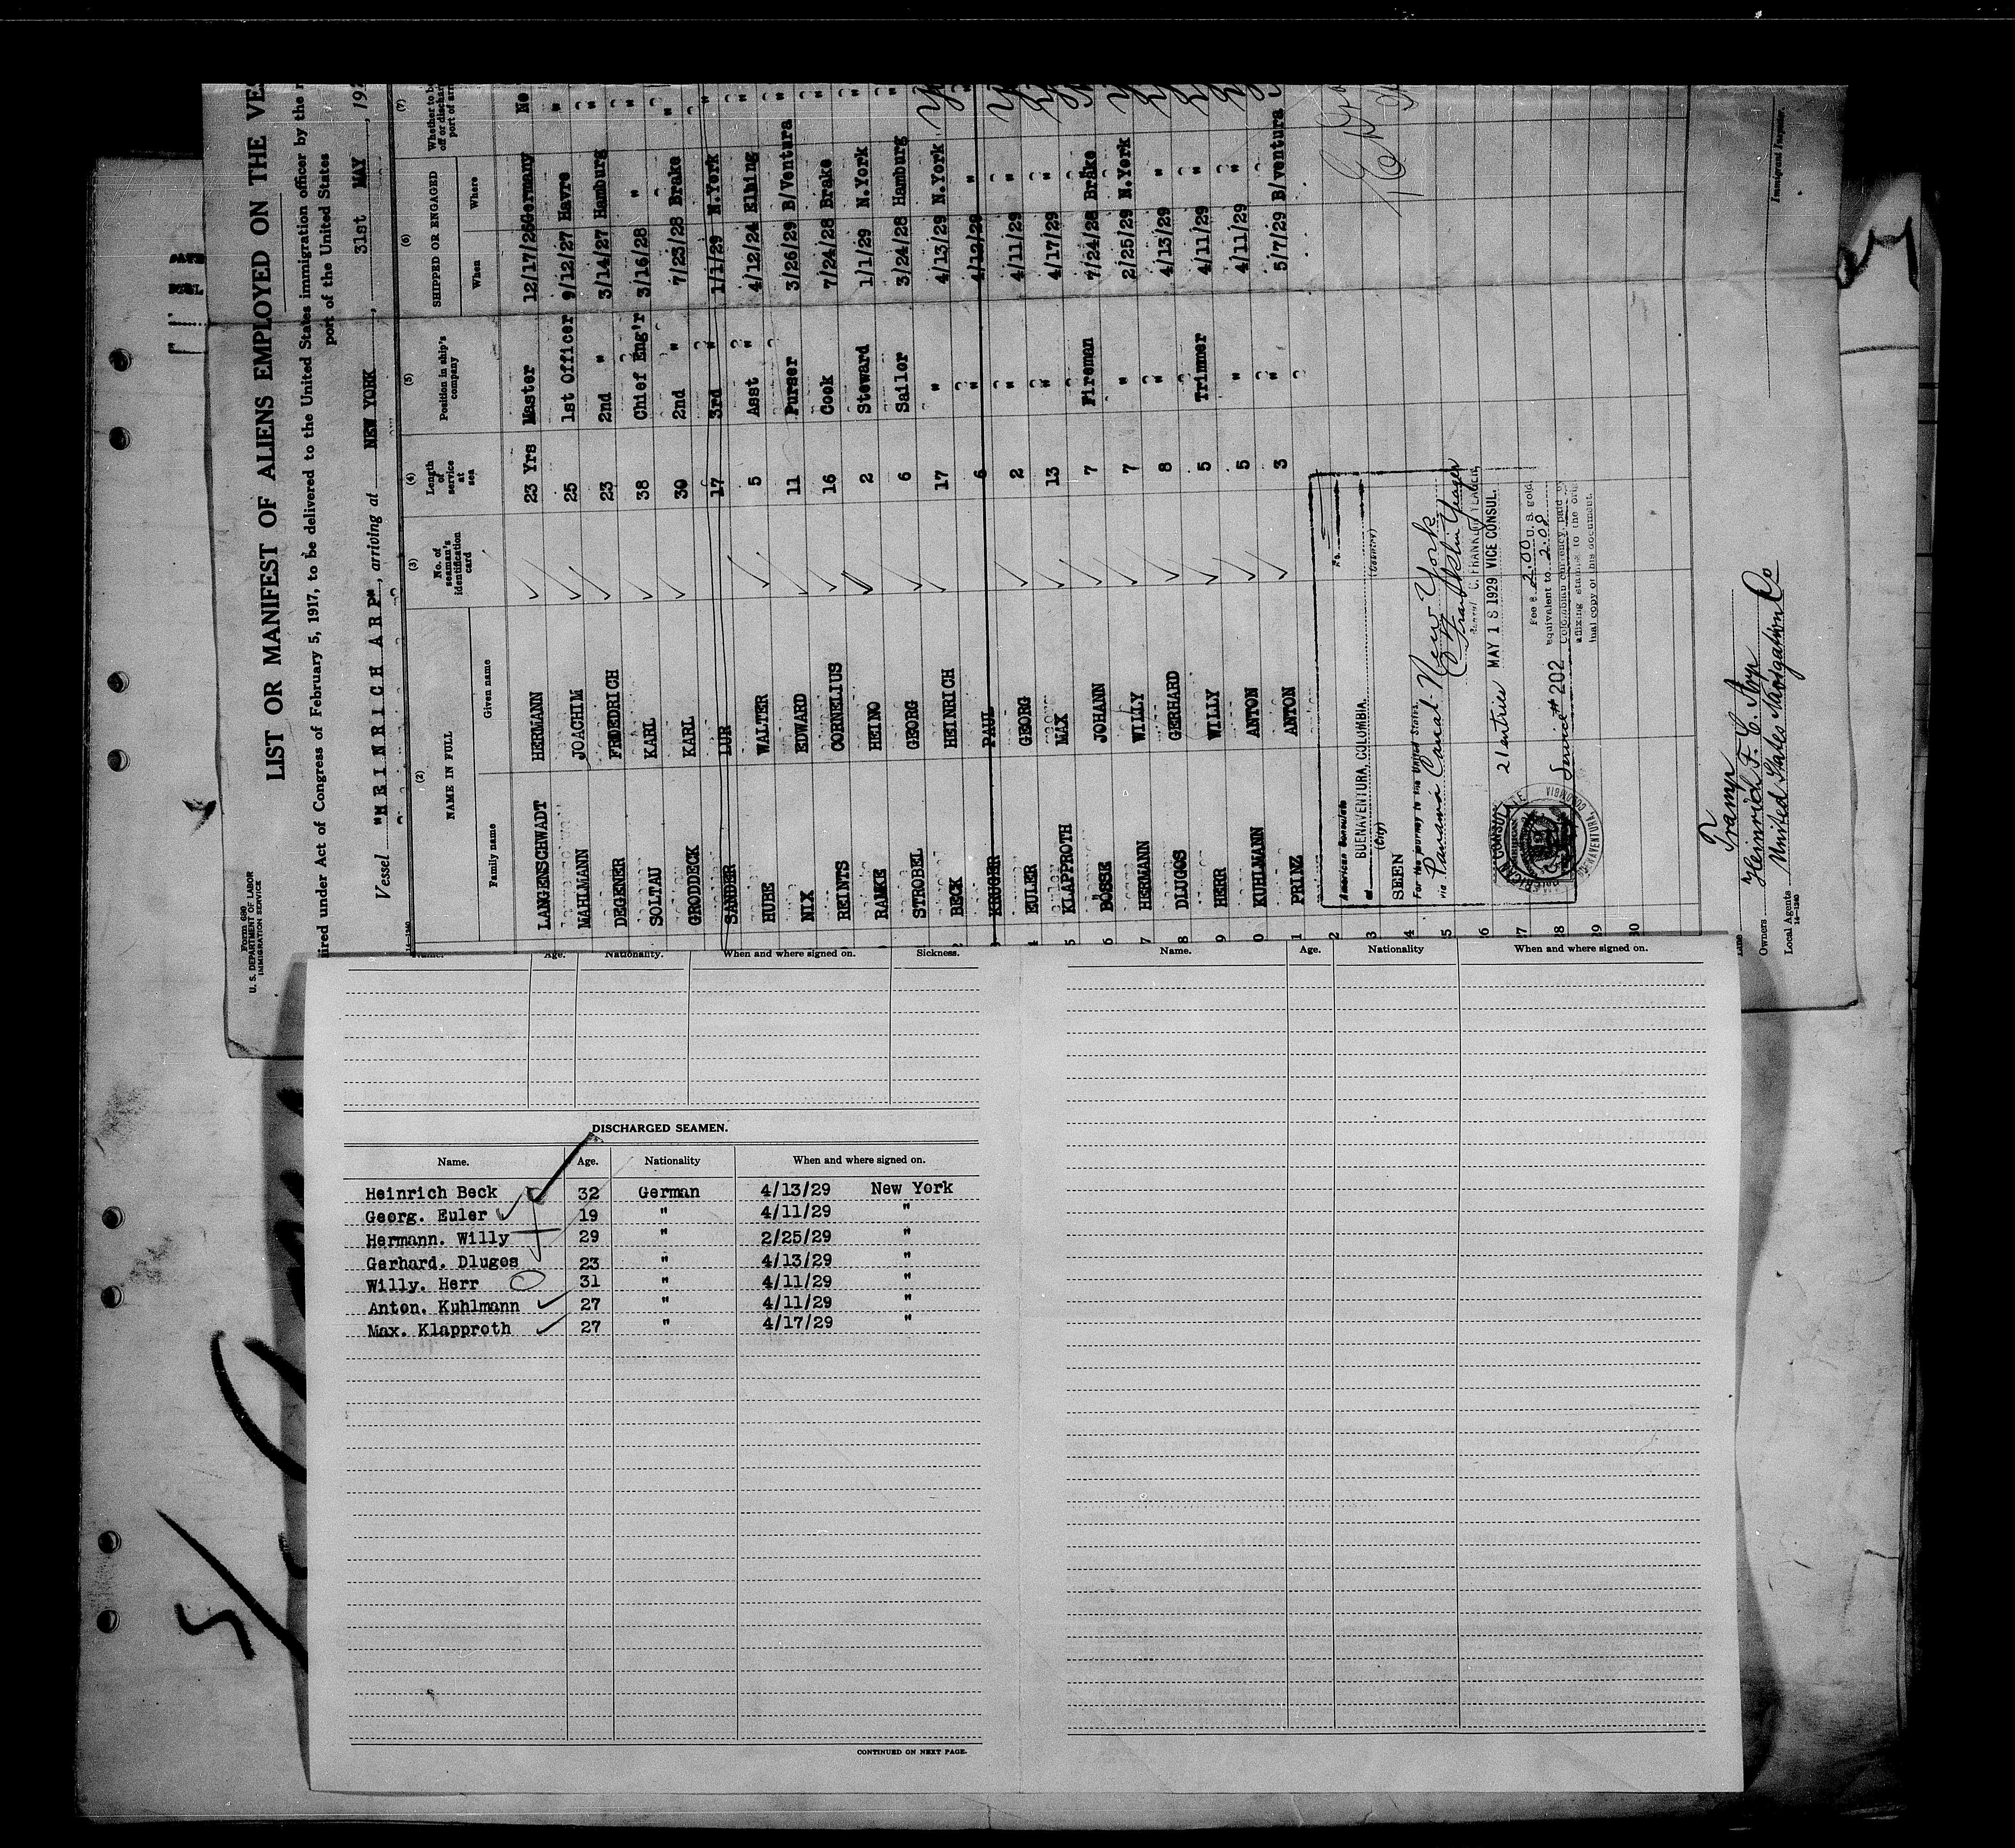 Form 680
U. S. DEPARTMENT OF LABOR
IMMIGRATION SERVICE
LIST OR MANIFEST OF ALIENS EMPLOYED ON THE
ired under Act of Congress of February 5, 1917, to be delivered to the United States immigration officer by the
port of the United States
Vessel "HEINRICH ARP", arriving at NEW YORK, 31st MAY, 192
14—1240
(2) (3) (4) (5) (6) (7)
NAME IN FULL No. of seaman's identification card Length of service at sea Position in ship's company SHIPPED OR ENGAGED Whether to be
Family name Given name When Where
LANGENSCHWADT HERMANN 23 Yrs Master 12/17/26 Germany No
MAHLMANN JOACHIM 25 1st Officer 9/12/27 Havre "
DEGENER FRIEDRICH 23 2nd " 3/14/27 Hamburg "
SOLTAU KARL 38 Chief Eng'r 3/16/28 " "
GRODDECK KARL 30 2nd " 7/23/28 Brake "
SANDER LUR 17 3rd " 1/1/29 N.York "
HUBE WALTER 5 Asst " 4/12/24 Elbing "
NIX EDWARD 11 Purser 3/26/29 B/Ventura "
REINTS CORNELIUS 16 Cook 7/24/28 Brake "
RAMKE HEINO 2 Steward 1/1/29 N.York "
STROBEL GEORG 6 Sailor 3/24/28 Hamburg "
BECK HEINRICH 17 " 4/13/29 N.York
KRUGER PAUL 6 " 4/12/29 "
4 EULER GEORG 2 " 4/11/29 "
5 KLAPPROTH MAX 13 " 4/17/29 "
6 BÖSSE JOHANN 7 Fireman 7/24/28 Brake
7 HERMANN WILLY 7 " 2/25/29 N.York
8 DLUGOS GERHARD 8 " 4/13/29 "
9 HERR WILLY 5 Trimmer 4/11/29 "
0 KUHLMANN ANTON 5 " 4/11/29 "
1 PRINZ ANTON 3 " 5/7/29 B/ventura
2
3
4
5
26
27
28
29
30
American Consulate No.
at BUENAVENTURA, COLOMBIA.
(City) (Country)
SEEN
For the journey to the United States
via Panama Canal New York
C. Franklin Yeager
C. FRANKLIN YEAGER
21 entries MAY 18 1929 VICE CONSUL.
Fee $ 2.00 U. S. gold,
equivalent to 2.00
Colombian currency, paid
Service # 202
affixing stamps to the
copy of this document.
AMERICAN CONSULATE
BUENAVENTURA, COLOMBIA
Tramp
Owners Heinrich F. C. Arp
Local Agents United States Navigation Co
14—1240
Immigrant Inspector.
Name. Age. Nationality. When and where signed on. Sickness.
DISCHARGED SEAMEN.
Name. Age. Nationality When and where signed on.
Heinrich Beck 32 German 4/13/29 New York
Georg. Euler 19 " 4/11/29 "
Hermann. Willy 29 " 2/25/29 "
Gerhard. Dlugos 23 " 4/13/29 "
Willy. Herr 31 " 4/11/29 "
Anton. Kuhlmann 27 " 4/11/29 "
Max. Klapproth 27 " 4/17/29 "
CONTINUED ON NEXT PAGE.
Name. Age. Nationality When and where signed on.